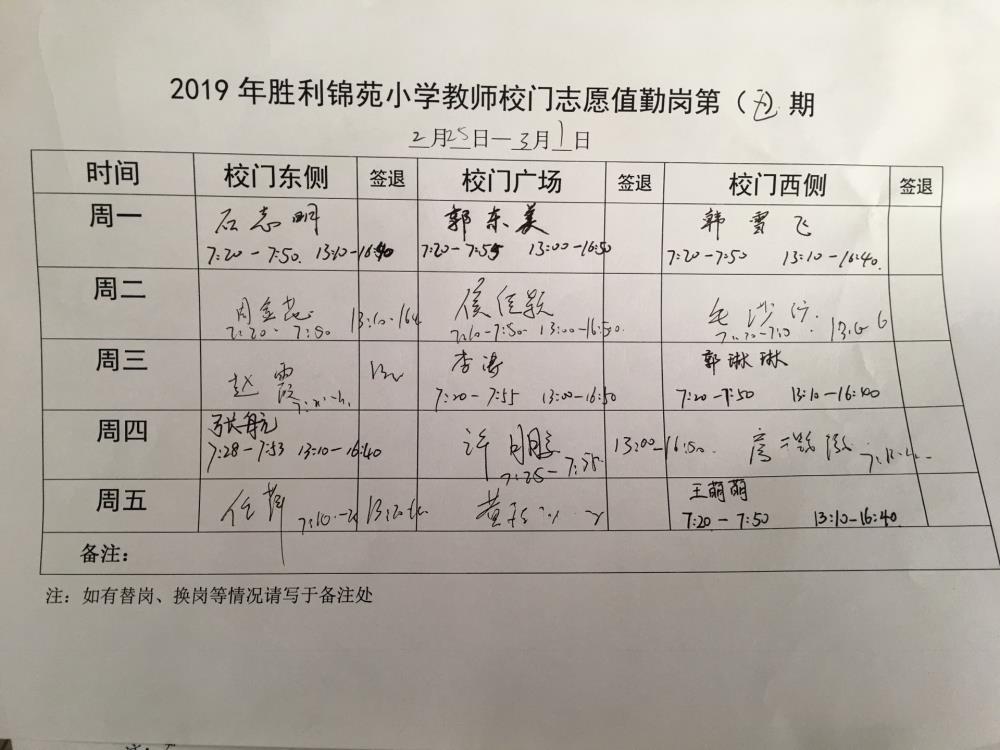 2019 年胜利锦苑小学教师校门志愿值勤岗第（ ）期
2月25日—3月1日
时间 校门东侧 签退 校门广场 签退 校门西侧 签退
周一 石志明 郭东美 韩雪飞
7:20-7:50. 13:10-16:40 7:20-7:55 13:00-16:50 7:20-7:50 13:10-16:40.
周二 侯佳颖
7:20-7:50 13:10-164 7:10-7:50- 13:00-16:50.
周三 赵霞 李涛 郭琳琳
7:20-7:55 13:00-16:50 7:20-7:50 13:10-16:40
周四 张航 许 13:00-16:50.
7:28-7:53 13:10-16:40 7:25-7:55
周五 任 黄 王萌萌
7:20-7:50 13:10-16:40.
备注：
注：如有替岗、换岗等情况请写于备注处